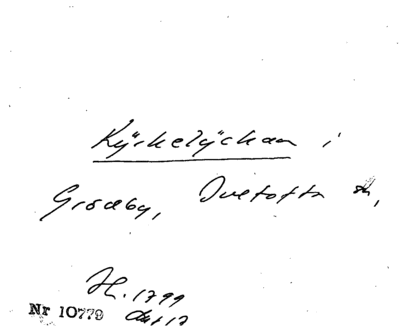 Kyrkelyckan i
Grödby, Ivetofta sn,
H. 1799
Nr 10779